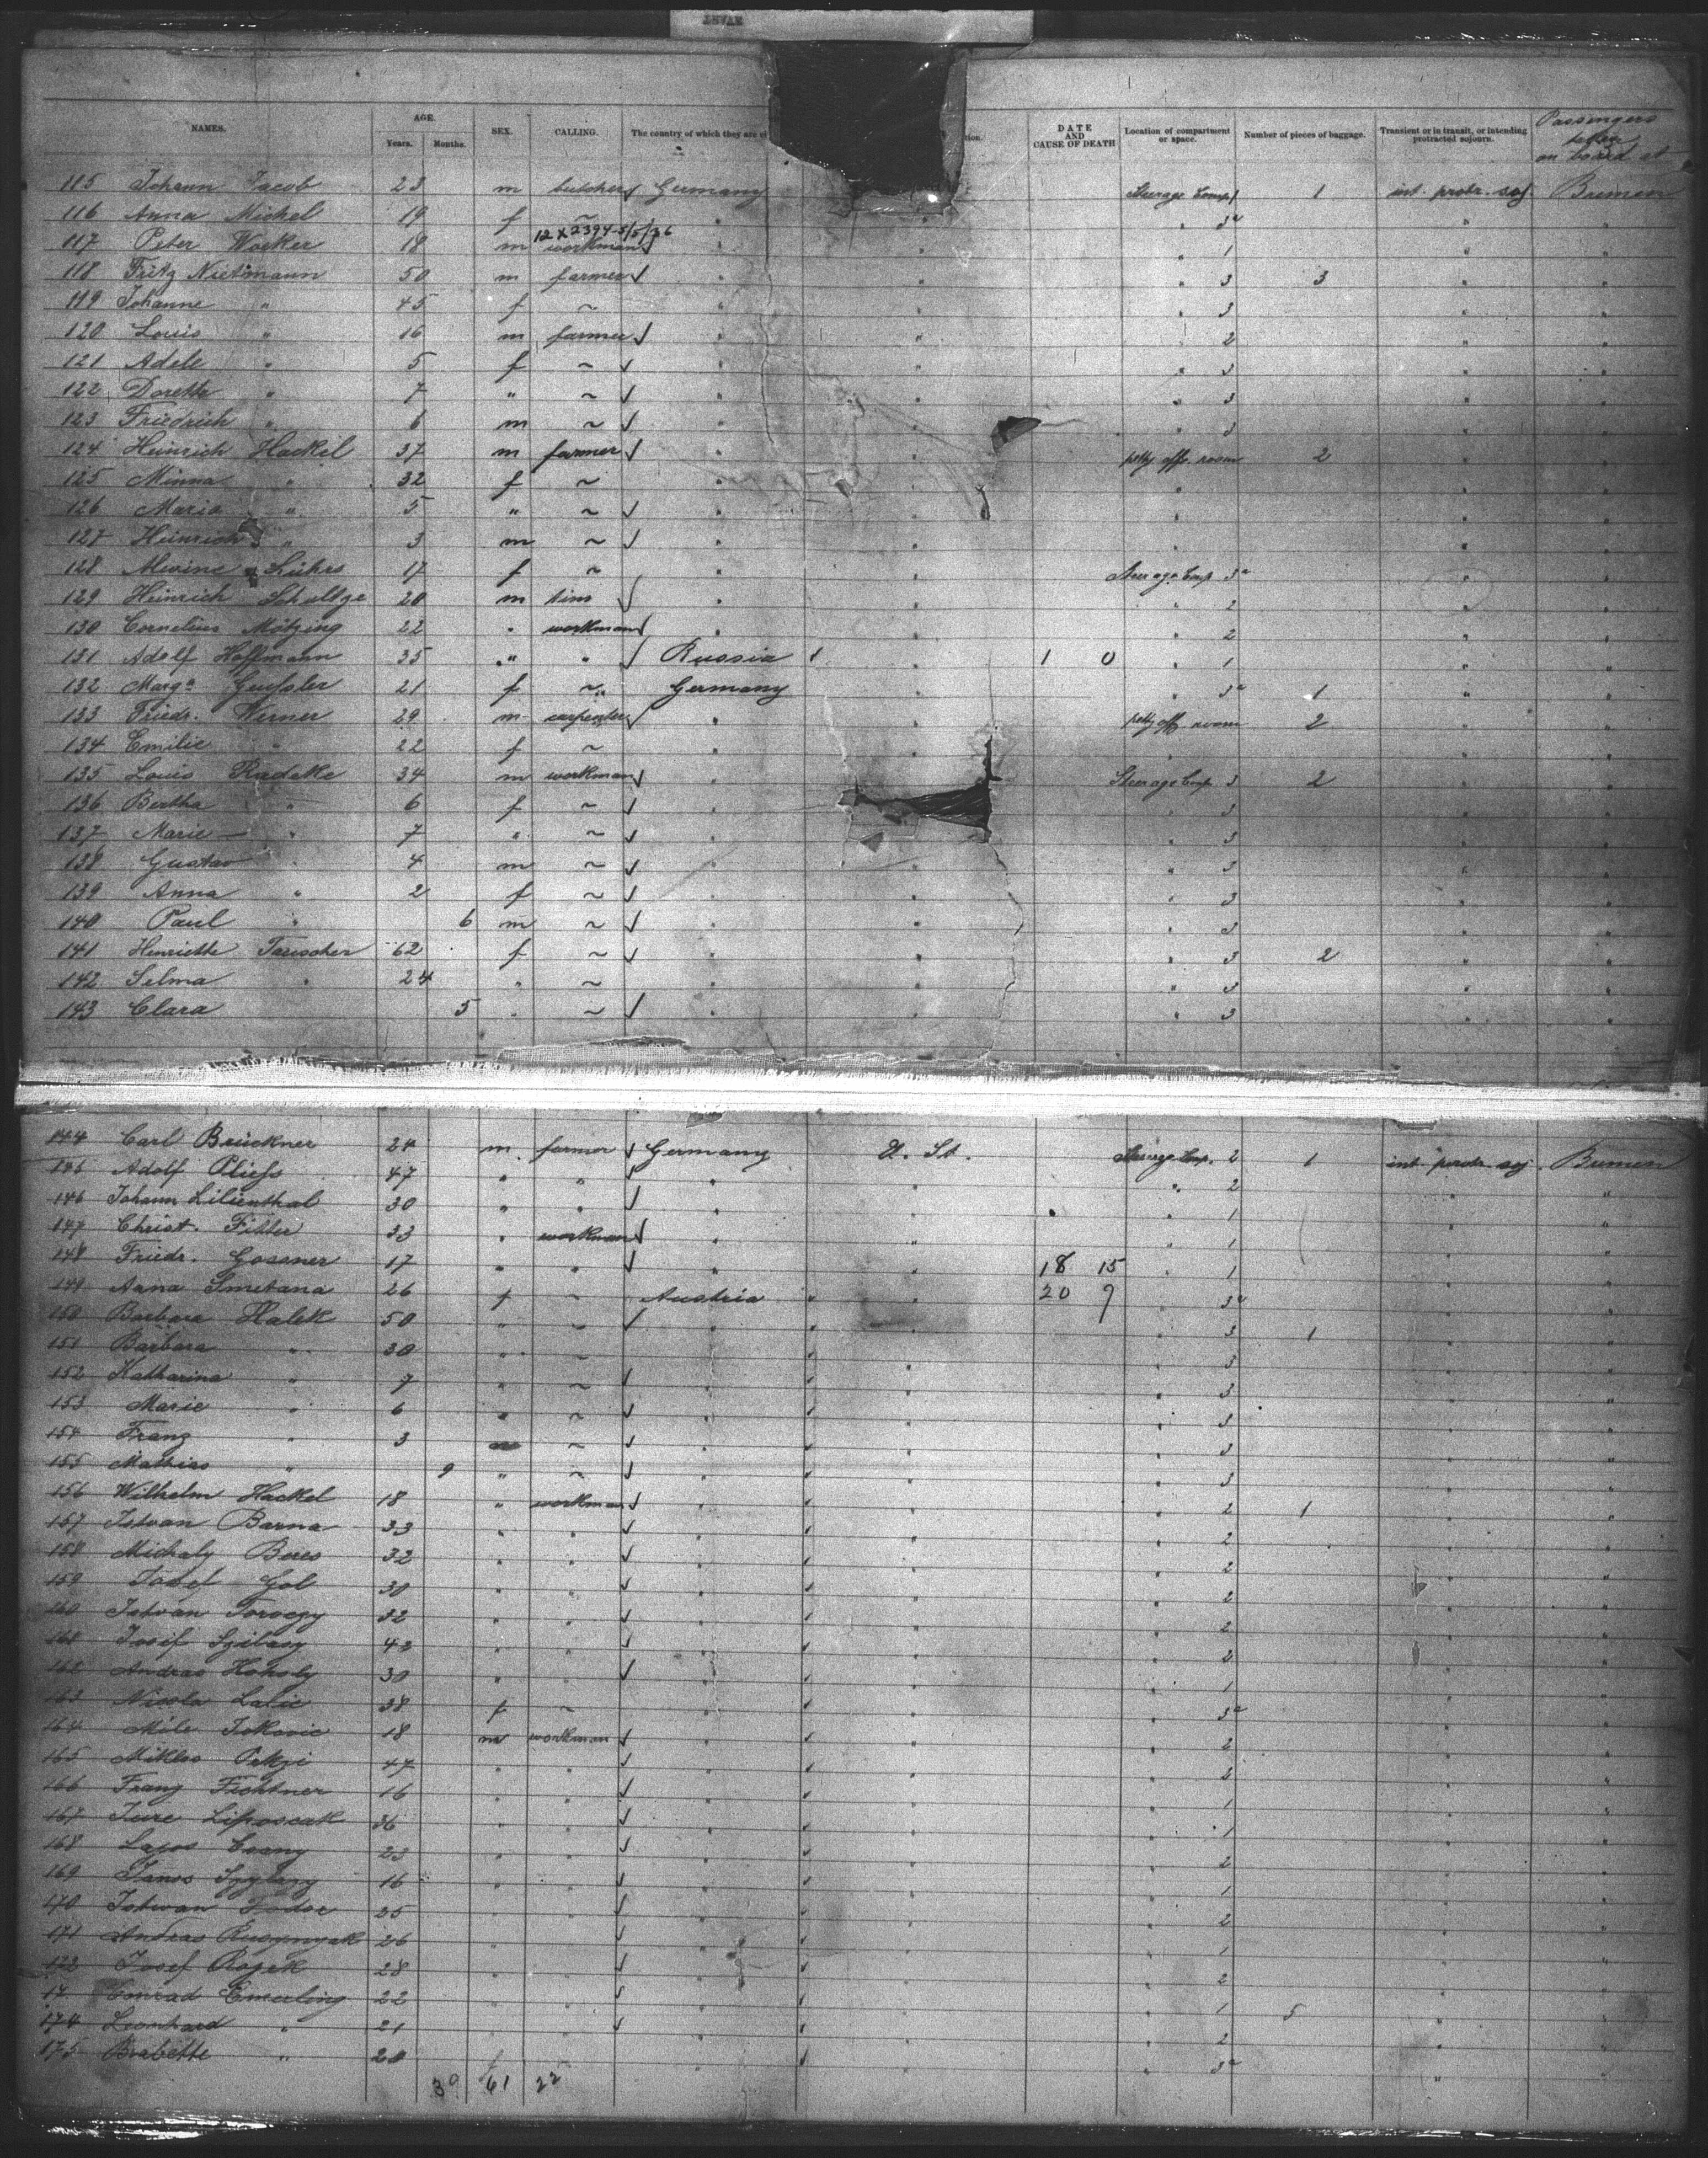 NAMES. AGE. Years. Months. SEX. CALLING. The country of which they are DATE AND CAUSE OF DEATH Location of compartment or space. Number of pieces of baggage. Transient or in transit, or intending protracted sojourn. Passengers taken on board at
115 Johann Jacob 23 m butcher Germany Steerage Comp 1 1 int. protr. soj. Bremen
116 Anna Michel 19 f ~ " " 3a " "
12 X 2394-5/5/36
117 Peter Worker 18 m workman " " 1 " "
118 Fritz Nietmann 50 m farmer " " 3 3 " "
119 Johanne " 45 f ~ " " 3 " "
120 Louis " 16 m farmer " " 2 " "
121 Adele " 5 f ~ " " 3 " "
122 Dorette " 7 " ~ " " 3 " "
123 Friedrich " 6 m ~ " " 3 " "
124 Heinrich Hackel 37 m farmer " petty off. room 2 " "
125 Minna " 32 f ~ " " " "
126 Maria " 5 " ~ " " " "
127 Heinrich " 3 m ~ " " " "
128 Lührs 17 f ~ " Steerage Comp 3a " "
129 Heinrich Schultze 20 m " " 2 " "
130 Cornelius Mötzing 22 " workman " " 2 " "
131 Adolf Hoffmann 35 " " Russia " 1 0 " 1 " "
132 Marga 21 f ~ Germany " 3a 1 " "
133 Friedr. Werner 29 m carpenter " petty off room 2 " "
134 Emilie " 22 f ~ " " " "
135 Louis Radeke 34 m workman " Steerage Comp 3 2 " "
136 Bertha " 6 f ~ " " 3 " "
137 Marie " 7 " ~ " " 3 " "
138 Gustav " 4 m ~ " " 3 " "
139 Anna " 2 f ~ " " 3 " "
140 Paul " 6 m ~ " " 3 " "
141 Henriette Tauscher 62 f ~ " " 3 2 " "
142 Selma " 24 " ~ " " 3 " "
143 Clara 5 " ~ " " 3 " "
144 Carl Brückner 24 m. farmer Germany U. St. Steerage Comp. 2 1 int. protr. soj. Bremen
145 Adolf 47 " " " " " 2 " "
146 Johann Lilienthal 30 " " " " " 1 " "
147 Christ. Fitter 33 " workman " " " 1 " "
148 Friedr. Gossner 17 " " " " 18 15 " 1 " "
149 Anna Smetana 26 f ~ Austria " 20 9 " 3a " "
150 Barbara Halek 50 " ~ " " " 3 1 " "
151 Barbara " 30 " ~ " " " 3 " "
152 Katharina " 7 " ~ " " " 3 " "
153 Marie " 6 " ~ " " " 3 " "
154 Franz " 3 m ~ " " " 3 " "
155 Mathias " 9 " ~ " " " 3 " "
156 Wilhelm Hackel 18 " workman " " " 2 1 " "
157 Istvan Barna 33 " " " " " 2 " "
158 Michaly Beres 32 " " " " " 2 " "
159 Josef Gol 30 " " " " " 2 " "
160 Istvan Toroczy 32 " " " " " 2 " "
161 Josif Szilasy 42 " " " " " 2 " "
162 Andras 30 " " " " " 1 " "
163 Nicola Lalic 38 f ~ " " " 3a " "
164 Mile 18 m workman " " " 2 " "
165 Miklos 47 " " " " " 2 " "
166 Franz Fichtner 16 " " " " " 1 " "
167 Jure Liposcak 36 " " " " " 1 " "
168 Lajos 23 " " " " " 2 " "
169 Janos 16 " " " " " 1 " "
170 Istwan Fodor 25 " " " " " 2 " "
171 Andras 26 " " " " " 1 " "
172 Josef Rozek 28 " " " " " 2 " "
17 Conrad Emerling 22 " " " " " 1 5 " "
174 Leonhard " 21 " " " " " 2 " "
175 Babette " 20 f " " " 3a " "
39 61 22